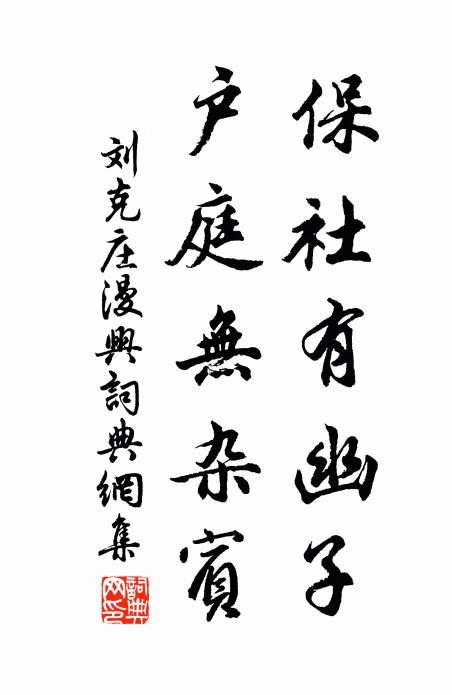 保社有幽子
户庭無杂賓
刘克庄漫興詞典網集
詞典网印